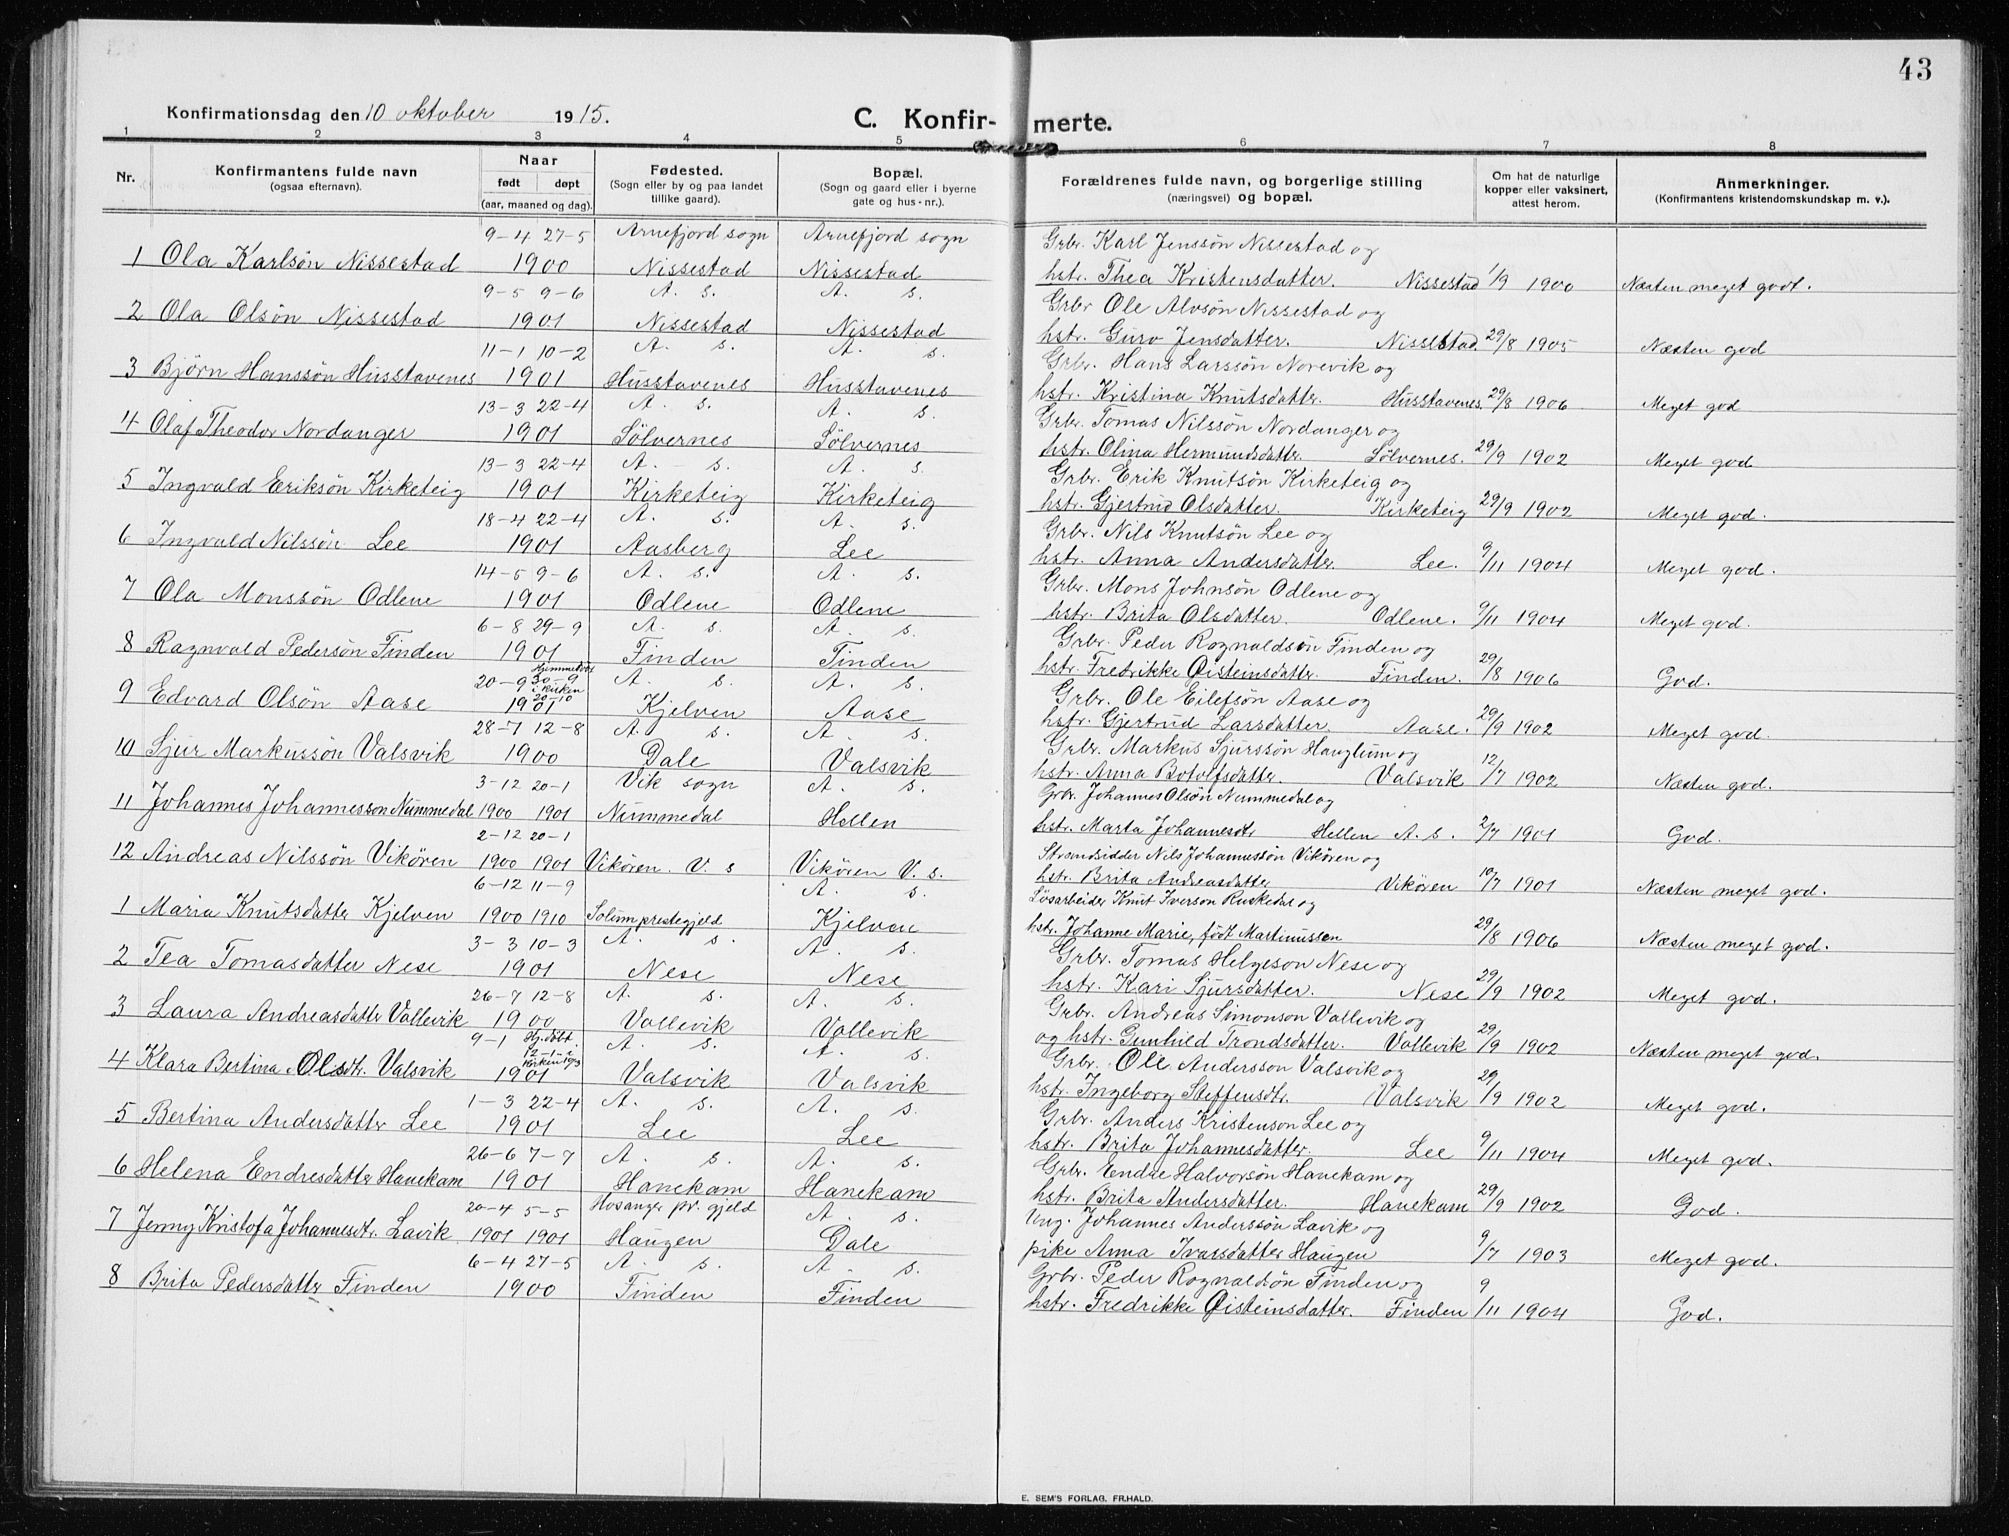 43
Konfirmationsdag den 10 oktober 1915.
C. Konfir- merte.
1 2 3 4 5 6 7 8
Nr. Konfirmantens fulde navn (ogsaa efternavn). Naar født døpt (aar, maaned og dag). Fødested. (Sogn eller by og paa landet tillike gaard). Bopæl. (Sogn og gaard eller i byerne gate og hus-nr.). Forældrenes fulde navn, og borgerlige stilling (næringsvei) og bopæl. Om hat de naturlige kopper eller vaksinert, attest herom. Anmerkninger. (Konfirmantens kristendomskundskap m. v.).
9-4 27-5 Arnefjord sogn Arnefjord sogn Grbr. Karl Jenssøn Nissestad og
1 Ola Karlsøn Nissestad 1900 Nissestad Nissestad hstr. Thea Kristensdatter. Nissestad 1/9 1900 Næsten meget godt.
9-5 9-6 A. s. A. s. Grbr Ole Alvsøn Nissestad og
2 Ola Olsøn Nissestad 1901 Nissestad Nissestad hstr. Guro Jensdatter. Nissestad 29/8 1905 Næsten god
11-1 10-2 A. s. A. s. Grbr. Hans Larssøn Norevik og
3 Bjørn Hanssøn Husstavenes 1901 Husstavenes Husstavenes hstr. Kristina Knutsdatter. Husstavenes. 29/8 1906 Meget god
13-3 22-4 A. s. A. s. Grbr. Tomas Nilssøn Nordanger og
4 Olaf Theodor Nordanger 1901 Sølvernes Sølvernes hstr. Olina Hermundsdatter. Sølvernes. 29/9 1902 Meget god
13-3 22-4 A. s. A. s. Grbr. Erik Knutsøn Kirketeig og
5 Ingvald Eriksøn Kirketeig 1901 Kirketeig Kirketeig hstr. Gjertrud Olsdatter. Kirketeig 29/9 1902 Meget god.
18-4 22-4 A. s. A. s. Grbr. Nils Knutsøn Lee og
6 Ingvald Nilssøn Lee 1901 Aasberg Lee hstr. Anna Andersdatter. Lee. 9/11 1904 Meget god.
14-5 9-6 A. s. A. s. Grbr. Mons Johnsøn Odlene og
7 Ola Monssøn Odlene 1901 Odlene Odlene hstr. Brita Olsdatter. Odlene. 9/11 1904 Meget god.
6-8 29-9 A. s. A. s. Grbr. Peder Rognaldsøn Finden og
8 Ragnvald Pedersøn Finden 1901 Finden Finden hstr. Fredrikke Øisteinsdatter. Finden. 29/8 1906 God.
20-9 30-9 i kirken 20-10 A. s. A. s. Grbr. Ole Eilefsøn Aase og
9 Edvard Olsøn Aase 1901 Kjelven Aase hstr. Gjertrud Larsdatter. Aase. 29/9 1902 Meget god.
28-7 12-8 A. s. A. s. Grbr. Markus Sjurssøn Hauglum og
10 Sjur Markussøn Valsvik 1900 Dale Valsvik hstr. Anna Botolfsdatter. Valsvik 12/7 1902 Næsten god.
3-12 20-1 Vik sogn A. s. Grbr. Johannes Olsøn Nummedal og
11 Johannes Johannesson Nummedal 1900 1901 Nummedal Hellen hstr. Marta Johannesdtr Hellen A. s. 2/7 1901 God.
2-12 20-1 Strandsidder Nils Johannessøn Vikøren og
12 Andreas Nilssøn Vikøren 1900 1901 Vikøren. V. s Vikøren V. s. hstr. Brita Andreasdatter Vikøren 10/7 1901 Næsten meget god.
6-12 11-9 A. s. Løsarbeider Knut Iverson Ruskedal og
1 Maria Knutsdatter Kjelven 1900 1910 Solum prestegjeld Kjelven hstr. Johanne Marie, født Martinussen 29/8 1906 Næsten meget god.
3-3 10-3 A. s. A. s. Grbr. Tomas Helgeson Nese og
2 Tea Tomasdatter Nese 1901 Nese Nese hstr. Kari Sjursdatter. Nese 29/9 1902 Meget god.
26-7 12-8 A. s. A. s. Grbr. Andreas Simonson Vallevik og
3 Laura Andreasdatter Vallevik 1900 Vallevik Vallevik og hstr. Gunhild Trondsdatter. Vallevik 29/9 1902 Næsten meget god.
9-1 Hj. døbt. A. s. A. s. Grbr. Ole Andersson Valsvik og
4 Klara Bertina Olsdtr. Valsvik 1901 Valsvik Valsvik hstr. Ingeborg Steffensdtr. Valsvik 29/9 1902 Meget god.
1-3 22-4 A. s. A. s. Grbr. Anders Kristenson Lee og
5 Bertina Andersdatter Lee 1901 Lee Lee hstr. Brita Johannesdatter. Lee 9/11 1904 Meget god.
26-6 7-7 A. s. A. s. Grbr. Endre Halvorsøn Hanekam og
6 Helena Endresdatter Hanekam 1901 Hanekam Hanekam hstr. Brita Andersdatter. Hanekam 29/9 1902 God.
20-4 5-5 Hosanger pr. gjeld A. s. Ung. Johannes Anderssøn Lavik og
7 Jenny Kristofa Johannesdtr. Lavik 1901 1901 Haugen Dale pike Anna Ivarsdatter Haugen 9/7 1903 Meget god.
6-4 27-5 A. s. A. s. Grbr. Peder Rognaldsøn Finden og
8 Brita Pedersdatter Finden 1900 Finden Finden hstr. Fredrikke Øisteinsdatter. Finden 9/11 1904 God.
E. SEM'S FORLAG. FR.HALD.